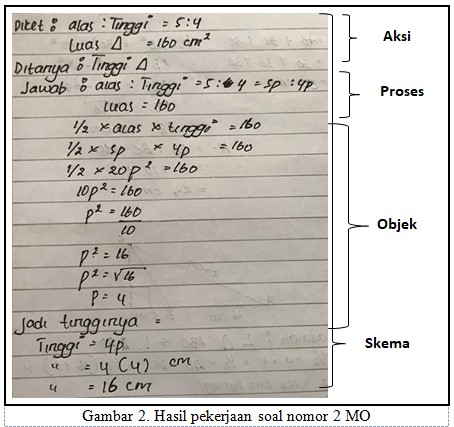 Diket : alas : Tinggi = 5 : 4
Luas Δ = 160 cm²
Aksi
Ditanya : Tinggi Δ
Jawab : alas : Tinggi = 5 : 4 = 5p : 4p
Luas = 160
Proses
1/2 x alas x tinggi = 160
1/2 x 5p x 4p = 160
1/2 x 20p² = 160
10p² = 160
p² = 160
10
p² = 16
p² = √16
p = 4
Objek
Jadi tingginya =
Tinggi = 4p
" = 4 (4) cm
" = 16 cm
Skema
Gambar 2. Hasil pekerjaan soal nomor 2 MO